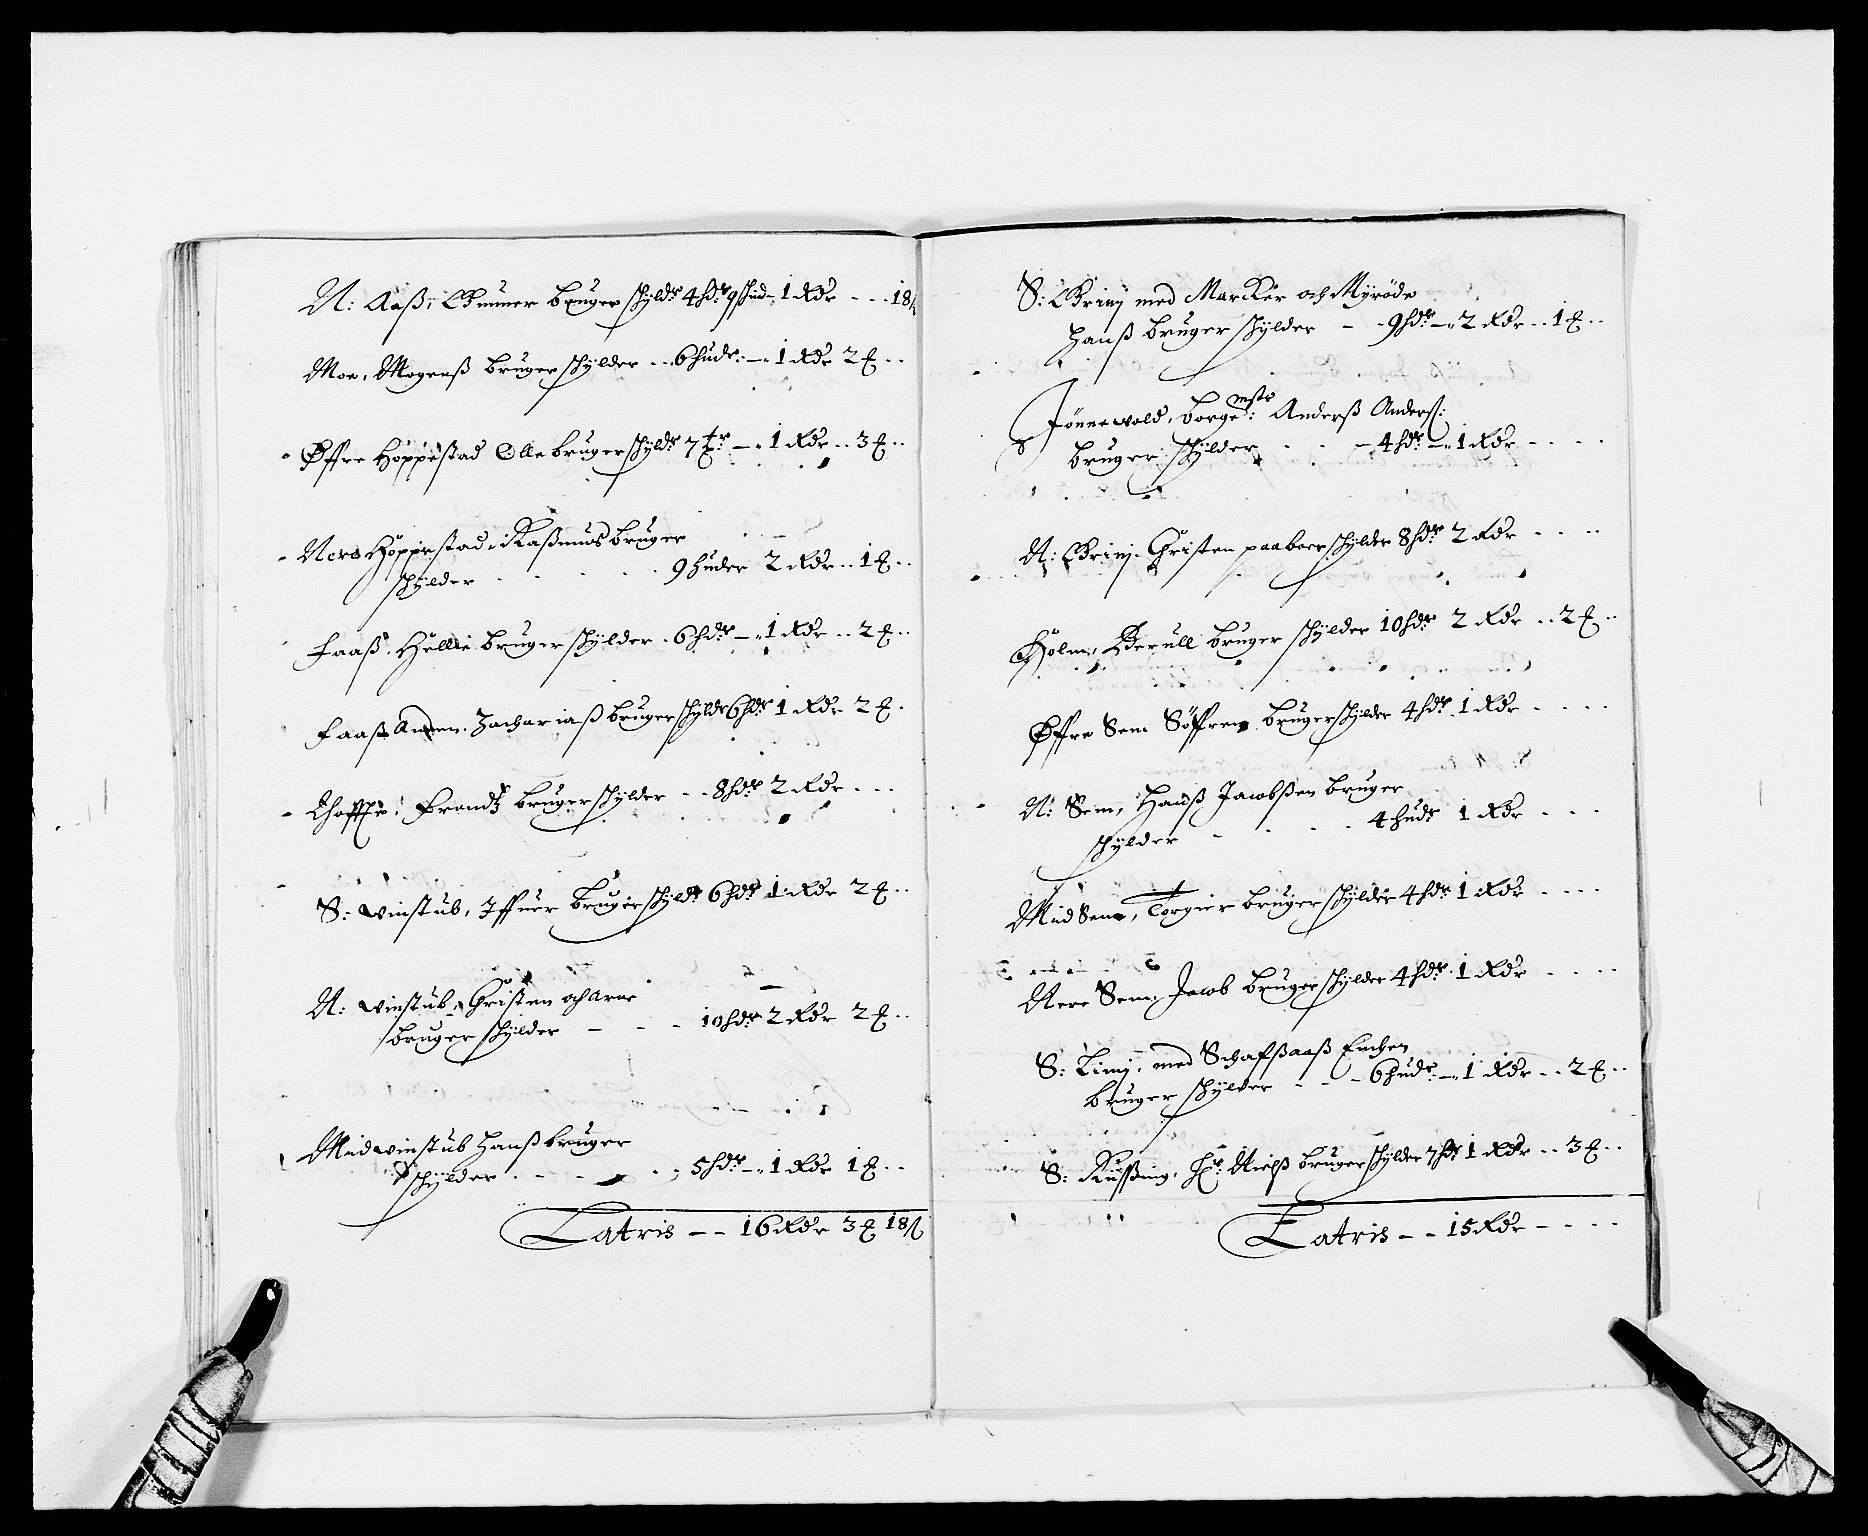 N: Aaß, Gunner bruger schylder 4 hdr 9 schind – 1 Rdr - - - 18 ß
Moe, Mogenß bruger schylder - - 6 hudr – 1 Rdr 2 ℔ - -
Øffre Høppestad Olle bruger schylder 7 – 1 Rdr - - 3 ℔ - -
Nere Høppestad, Raßmus bruger
schylder - - - 9 huder 2 Rdr - - 1 ℔ - -
Faaß, Hellie bruger schylder - 6 hdr – 1 Rdr - - 2 ℔ - -
Faaß Anden, Zachariaß bruger schylder 6 hdr 1 Rdr 2 ℔ -
Frandtz bruger schylder - - 8 hdr 2 Rdr - - -
S: winstub, Iffuer bruger schylder 6 hdr 1 Rdr 2 ℔ - -
N: winstub, Christen och Arne
bruger schylder - - - 10 hdr 2 Rdr 2 ℔ - -
Mid winstub Hanß bruger
schylder - - - 5 hdr – 1 Rdr 1 ℔ - -
Latris - - 16 Rdr 3 ℔ 18 ß
S: Griny med Marcker och Myrøde
Hanß bruger schylder - - 9 hdr – 2 Rdr - - 1 ℔ - -
Jønnewold, borgemstr: Anderß Anderß:
bruger schylder - - - 4 hdr – 1 Rdr - - - -
N: Griny, Christen paaboer schylder 8 hdr 2 Rdr - - - -
Holm, Berull bruger schylder 10 hdr 2 Rdr - - 2 ℔ - -
Øffre Sem Søffren bruger schylder 4 hdr 1 Rdr - - - -
N: Sem, Hanß Jacobßen bruger
schylder - - - - 4 hudr 1 Rdr - - -
Mid Sem, Torgier bruger schylder 4 hdr 1 Rdr - - - -
Nere Sem, Jacob bruger schylder 4 hdr 1 Rdr - - - -
S: Liny, med Schafßaaß Enchen
bruger schylder - - - 6 hudr – 1 Rdr - - 2 ℔ - -
S: Rußing, Hr: Nielß bruger schylder 7 hdr 1 Rdr - - 3 ℔ - -
Latris - - 15 Rdr - - - -